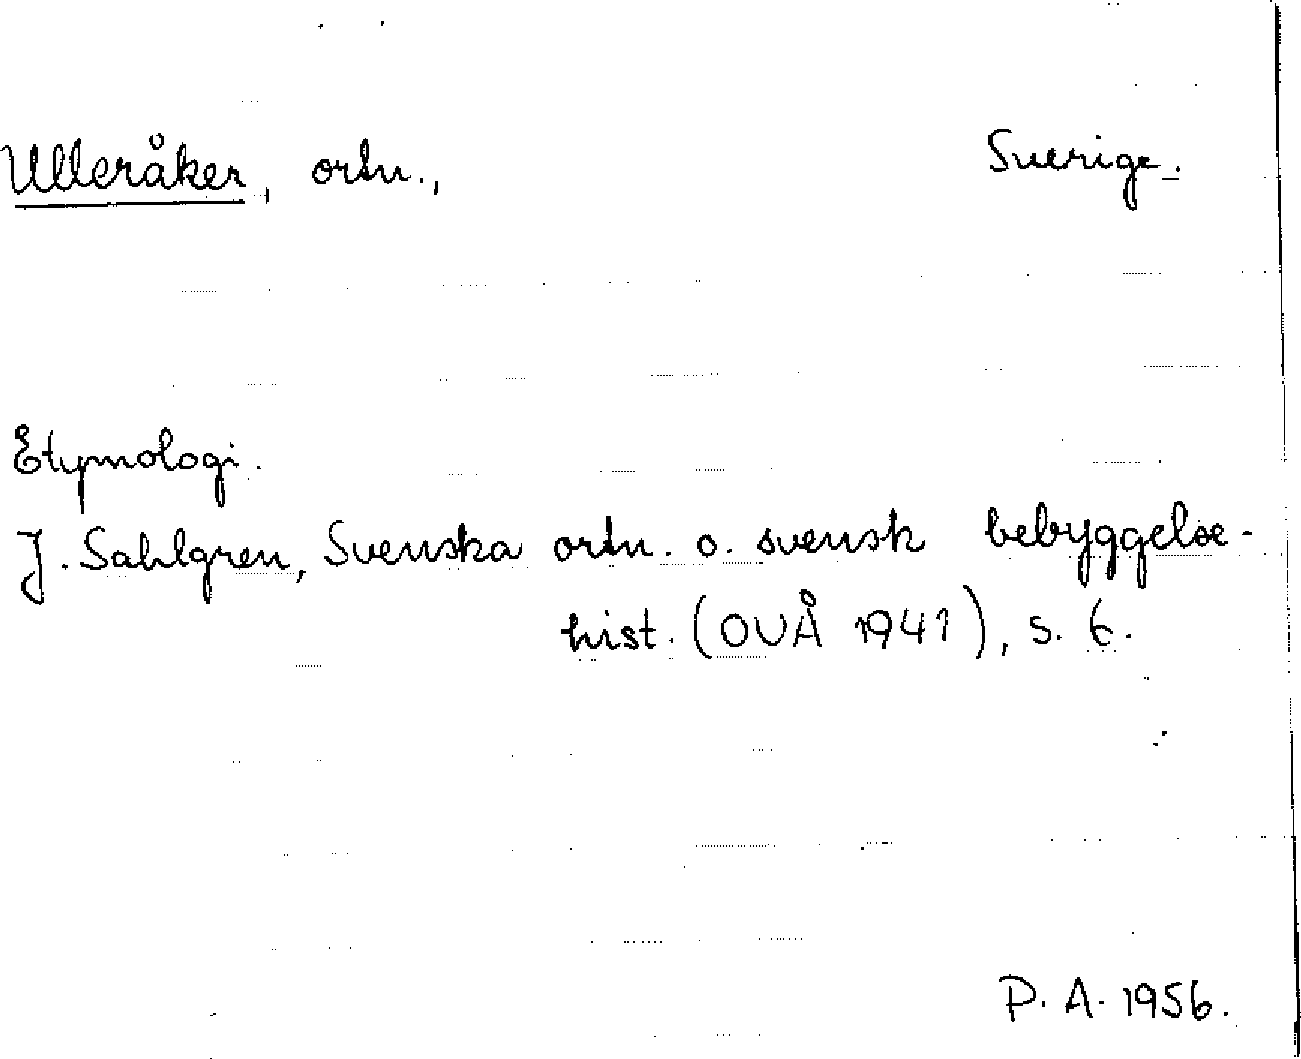 Ulleråker, ortn., Sverige.
Etymologi.
J. Sahlgren, Svenska ortn. o. svensk bebyggelse-
hist. (OUÅ 1941), s. 6.
P. A. 1956.